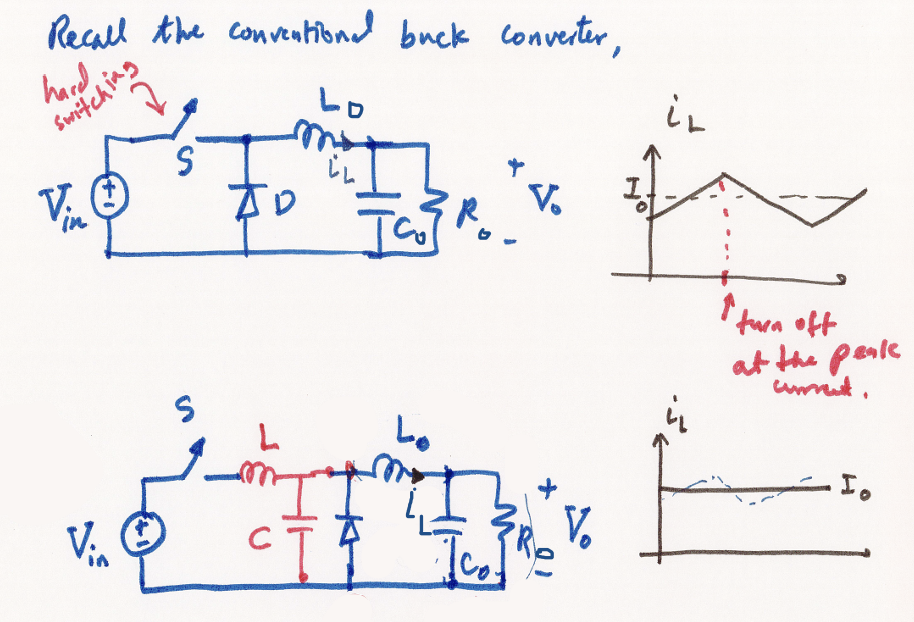 Recall the conventional buck converter,
hard
switching
S
L₀
i_L
V_in
D
C₀
R₀
+
V₀
-
i_L
I₀
turn off
at the peak
current.
S
L
L₀
i_L
V_in
C
C₀
R₀
+
V₀
-
i_L
I₀